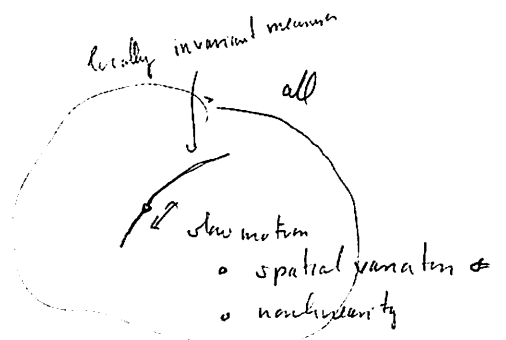 locally invariant measures
all
slow motion
• spatial variation
• nonlinearity